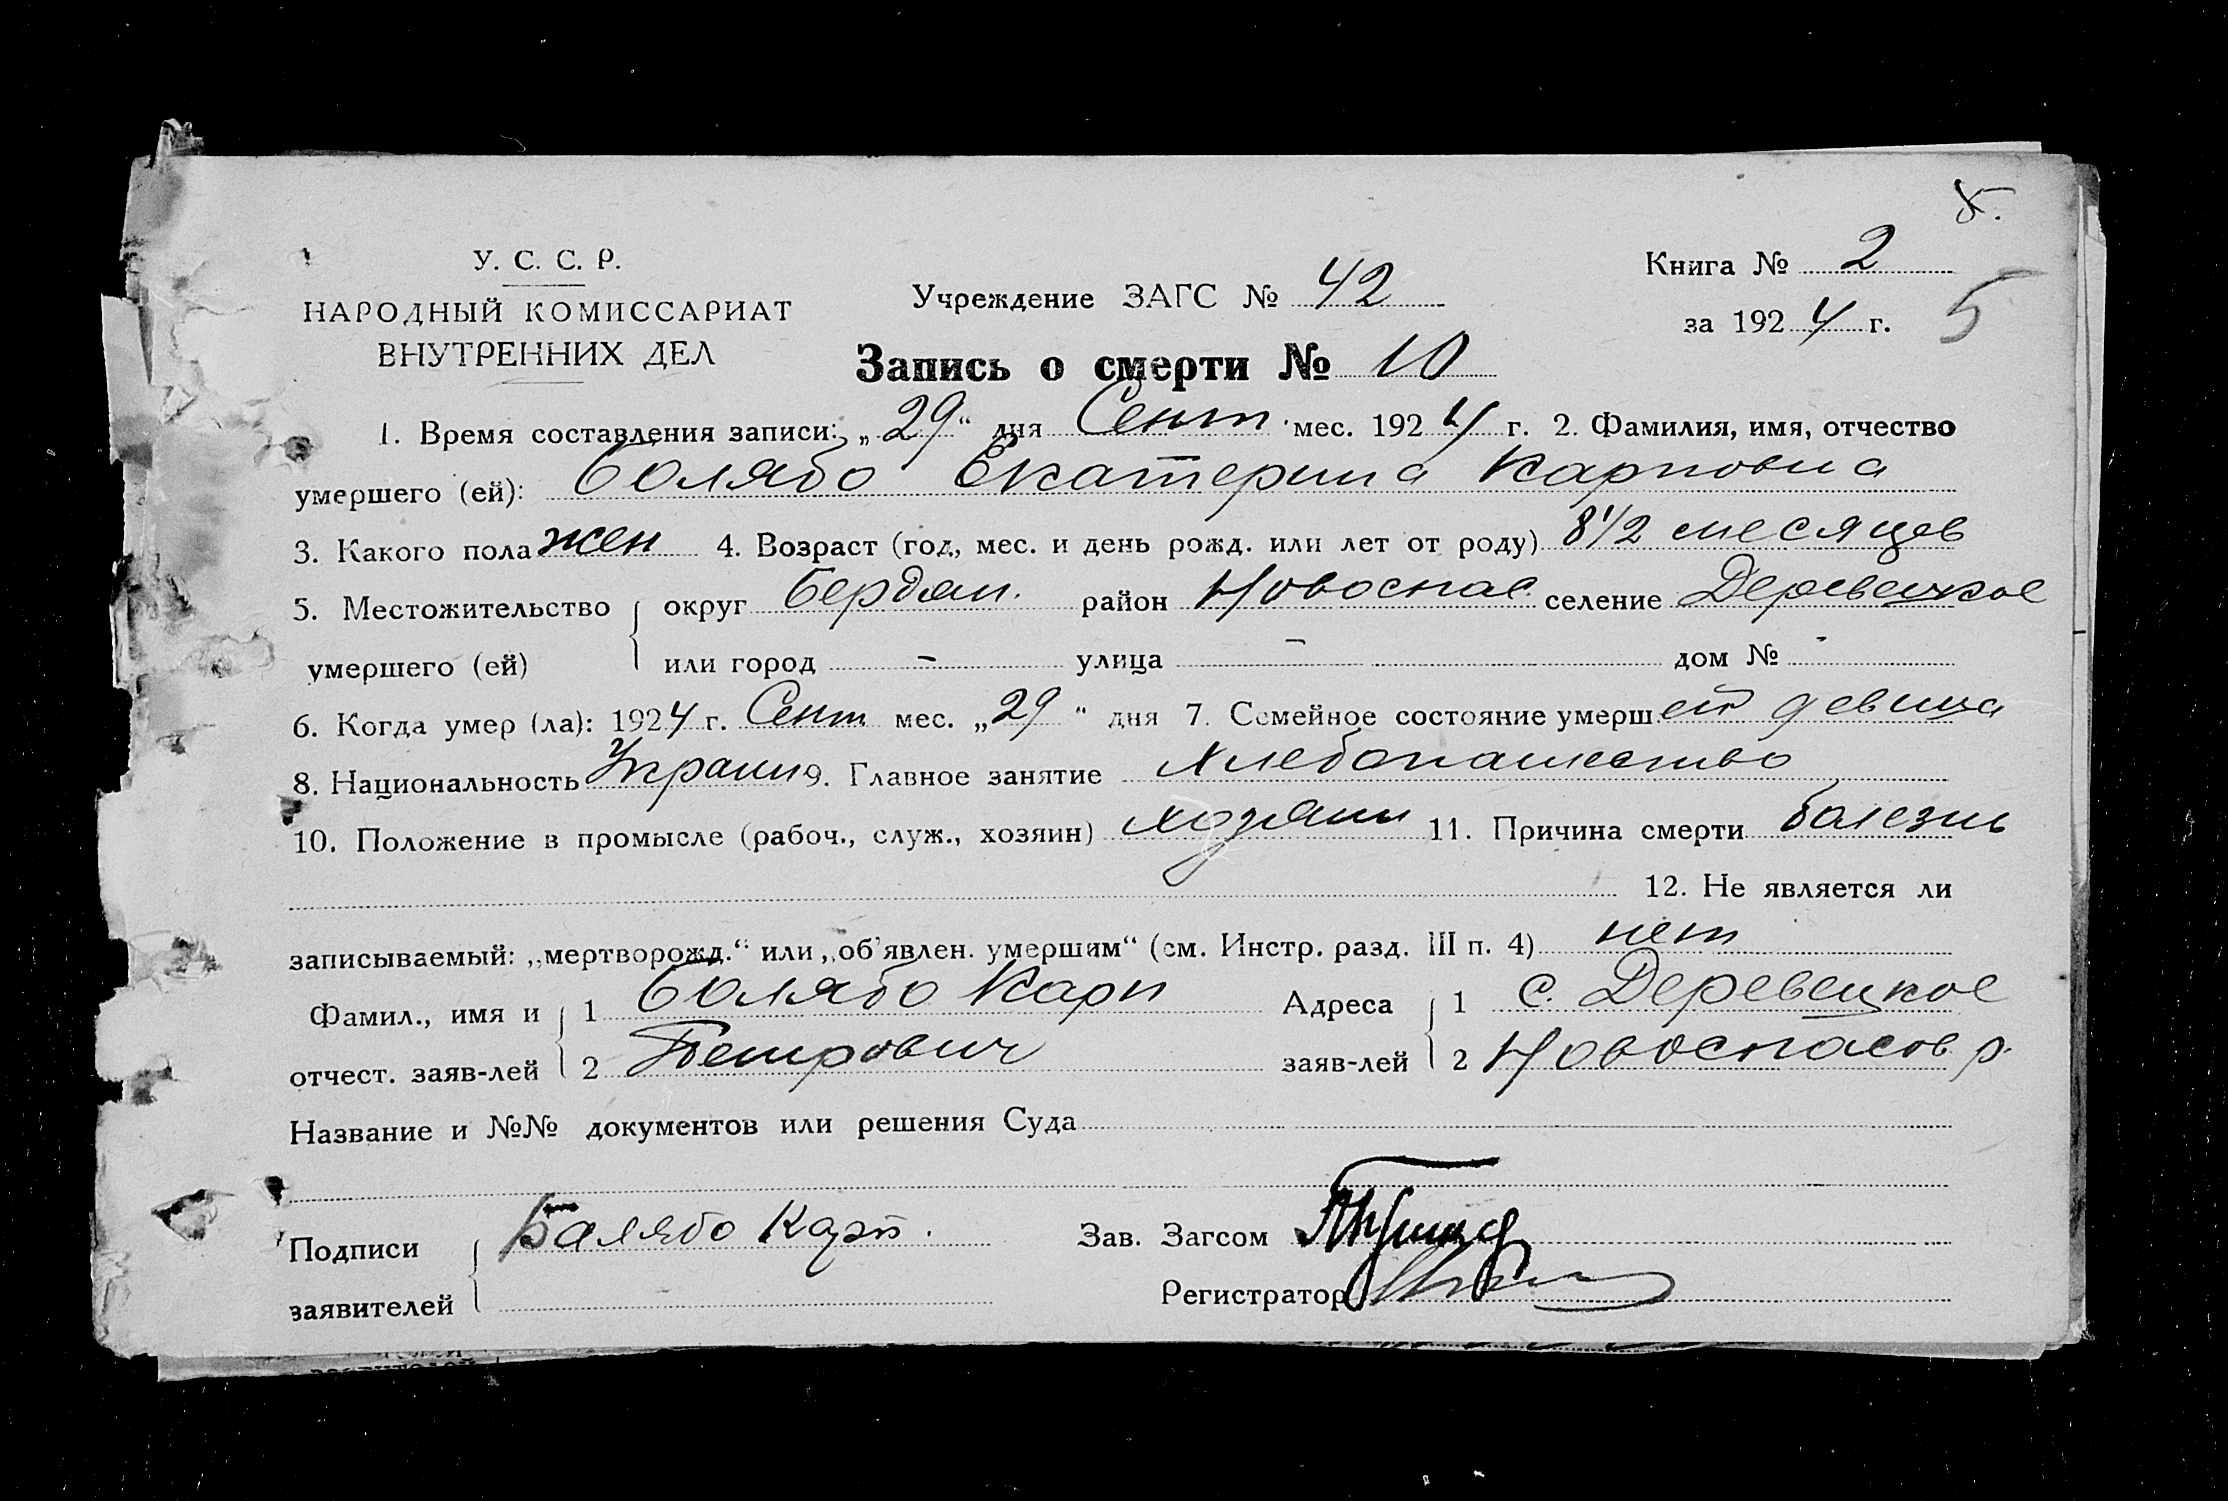 5.
У. С. С. Р.
НАРОДНЫЙ КОМИССАРИАТ
ВНУТРЕННИХ ДЕЛ
Учреждение ЗАГС № 42
Книга № 2
за 1924 г. 5
Запись о смерти № 10
1. Время составления записи: „29“ дня Сент мес. 1924 г. 2. Фамилия, имя, отчество
умершего (ей): Болябо Екатерина Карповна
3. Какого пола жен 4. Возраст (год, мес. и день рожд. или лет от роду) 8 1/2 месяцев
5. Местожительство округ Бердян. район Новоспас. селение Деревецкое
умершего (ей) или город - улица - дом № -
6. Когда умер (ла): 1924 г. Сент мес. „29“ дня 7. Семейное состояние умерш.ей девица
8. Национальность Украин 9. Главное занятие хлебопашество
10. Положение в промысле (рабоч., служ., хозяин) хозяин 11. Причина смерти болезнь
12. Не является ли
записываемый: „мертворожд.“ или „об'явлен. умершим“ (см. Инстр. разд. III п. 4) нет
Фамил., имя и 1 Болябо Карп Адреса 1 с. Деревецкое
отчест. заяв-лей 2 Петрович заяв-лей 2 Новоспасов р.
Название и №№ документов или решения Суда
Подписи Балябо Карп. Зав. Загсом
заявителей Регистратор